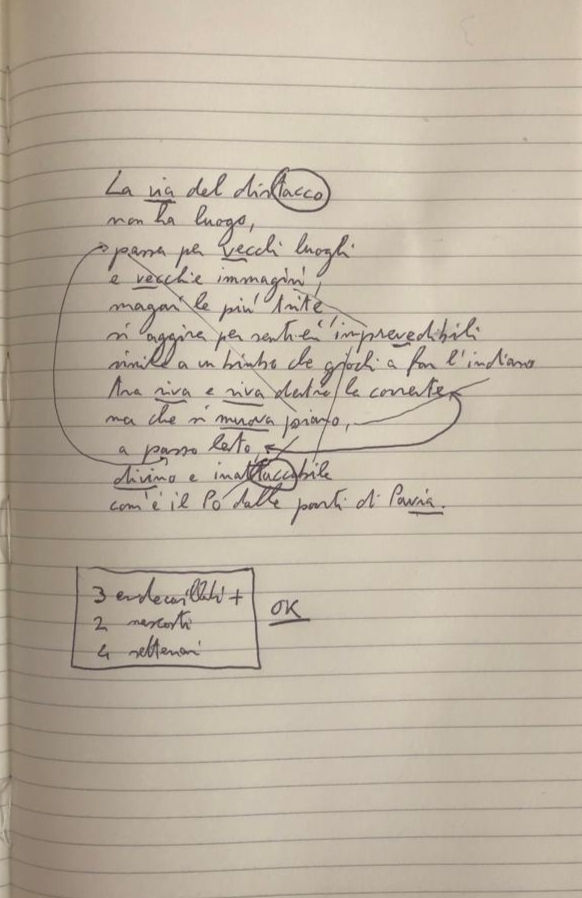 La via del distacco
non ha luogo,
passa per vecchi luoghi
e vecchie immagini,
magari le più trite
si aggira per sentieri imprevedibili
simile a un bimbo che giochi a far l'indiano
tra riva e riva dentro la corrente
ma che si muova piano,
a passo lento,
divino e inattaccabile
com'è il Po dalle parti di Pavia.
3 endecasillabi +
2 nascosti
4 settenari
OK